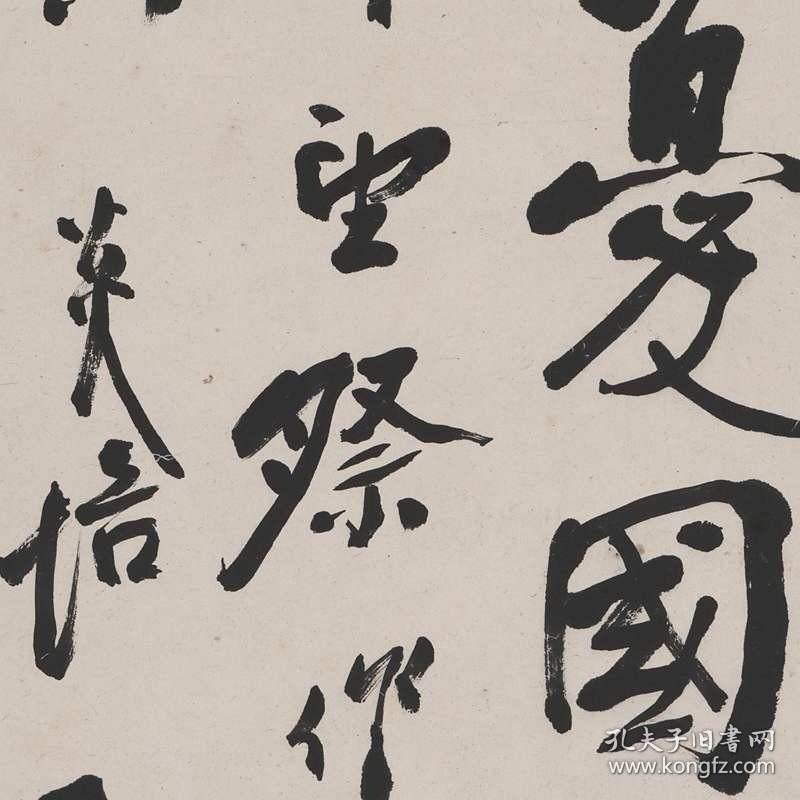 憂國
望祭作
炎培
孔夫子旧书网
www.kongfz.com